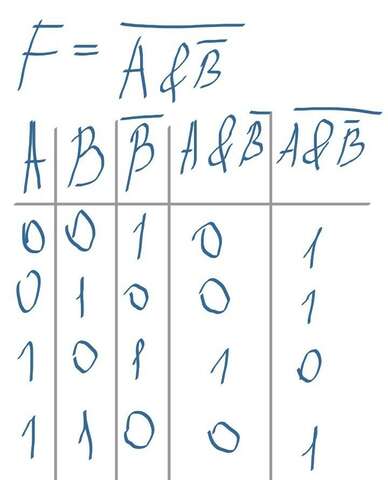 F = A̅ ̅&̅ ̅B̅̅
A B B̅ A & B̅ A̅ ̅&̅ ̅B̅̅
0 0 1 0 1
0 1 0 0 1
1 0 1 1 0
1 1 0 0 1